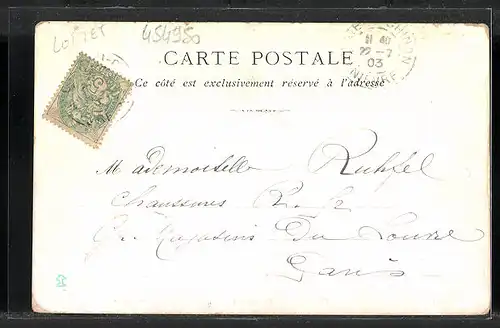 LOIRET
454950
CARTE POSTALE
Ce côté est exclusivement réservé à l'adresse
22 - 7
03
Mademoiselle Ruhfel
Chaussures
Gds Magasins Du Louvre
Paris